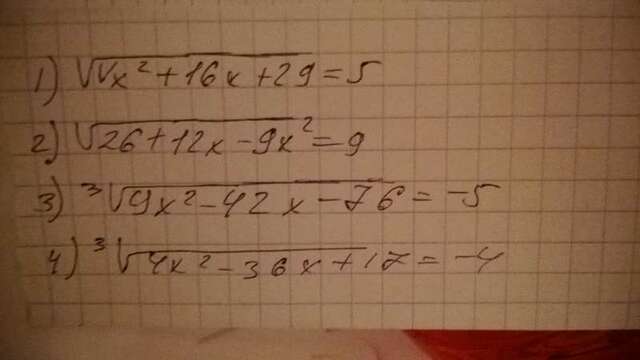 1) √√x² + 16x + 29 = 5
2) √26 + 12x - 9x² = 9
3) ³√9x² - 42x - 76 = -5
4) ³√4x² - 36x + 17 = -4